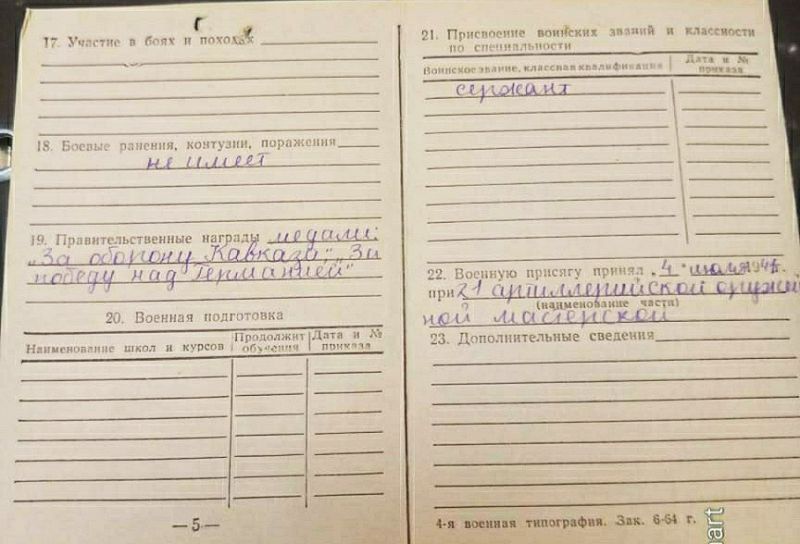 17. Участие в боях и походах
18. Боевые ранения, контузии, поражения
не имеет
19. Правительственные награды медали:
„За оборону Кавказа", „За
победу над Германией"
20. Военная подготовка
Наименование школ и курсов
Продолжит обучения
Дата и № приказа
—5—
21. Присвоение воинских званий и классности
по специальности
Воинское звание, классная квалификация
Дата и № приказа
сержант
22. Военную присягу принял „4" июля
при 21 артиллерийской оружей
(наименование части)
ной мастерской
23. Дополнительные сведения
4-я военная типография. Зак. 6-64 г.